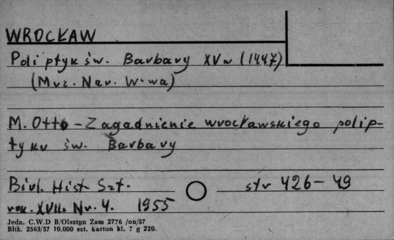 WROCŁAW
Poliptyk św. Barbary XVw (1447)
(Muz. Nar. W-wa)
M. Otto - Zagadnienie wrocławskiego polip-
tyku św. Barbary
Biul. Hist. Szt. str 426-49
rok. XVII. Nr. 4. 1955
Jedn. C.W.D B/Olsztyn Zam 2776 /on/57
Bltk. 2563/57 10.000 szt. karton kl. 7 g 220.